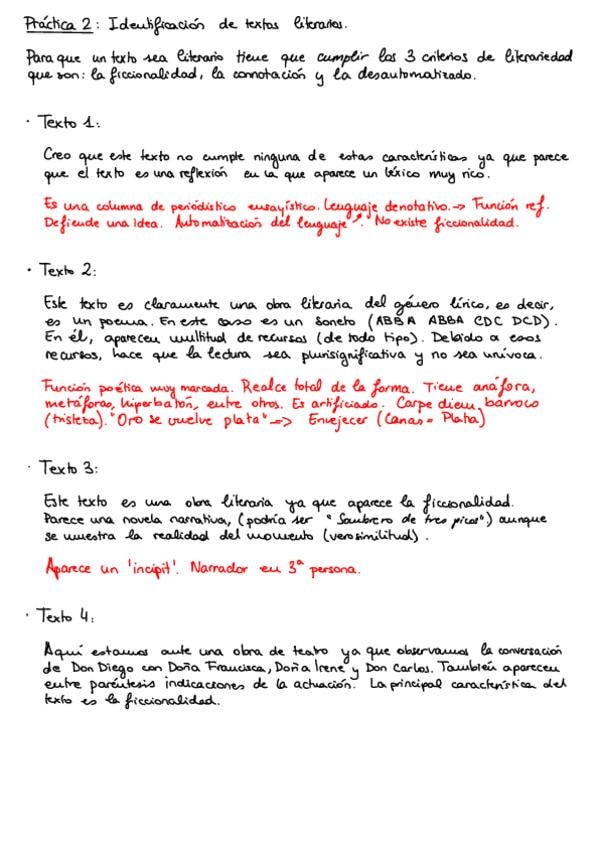 Práctica 2: Identificación de textos literarios.
Para que un texto sea literario tiene que cumplir los 3 criterios de literariedad
que son: la ficcionalidad, la connotación y la desautomatizado.
· Texto 1:
Creo que este texto no cumple ninguna de estas características ya que parece
que el texto es una reflexión en la que aparece un léxico muy rico.
Es una columna de periodístico ensayístico. Lenguaje denotativo. -> Función ref.
Defiende una idea. Automatización del lenguaje ↗. No existe ficcionalidad.
· Texto 2:
Este texto es claramente una obra literaria del género lírico, es decir,
es un poema. En este caso es un soneto (ABBA ABBA CDC DCD).
En él, aparecen multitud de recursos (de todo tipo). Debido a esos
recursos, hace que la lectura sea plurisignificativa y no sea unívoca.
Función poética muy marcada. Realce total de la forma. Tiene anáfora,
metáforas, hiperbatón, entre otros. Es artificiado. Carpe diem, barroco
(tristeza). "Oro se vuelve plata" => Envejecer (Canas = Plata)
· Texto 3:
Este texto es una obra literaria ya que aparece la ficcionalidad.
Parece una novela narrativa, (podría ser "Sombrero de tres picos".) aunque
se muestra la realidad del momento (verosimilitud).
Aparece un 'incipit'. Narrador en 3ª persona.
· Texto 4:
Aquí estamos ante una obra de teatro ya que observamos la conversación
de Don Diego con Doña Francisca, Doña Irene y Don Carlos. También aparecen
entre paréntesis indicaciones de la actuación. La principal característica del
texto es la ficcionalidad.